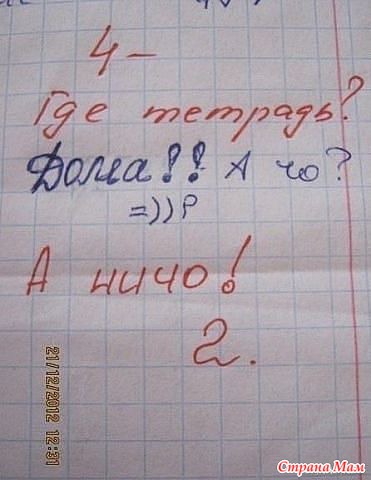 4-
Где тетрадь?
Дома!! А чо?
=))Р
А ничо!
2.
21/12/2012 12:31
Страна Мам